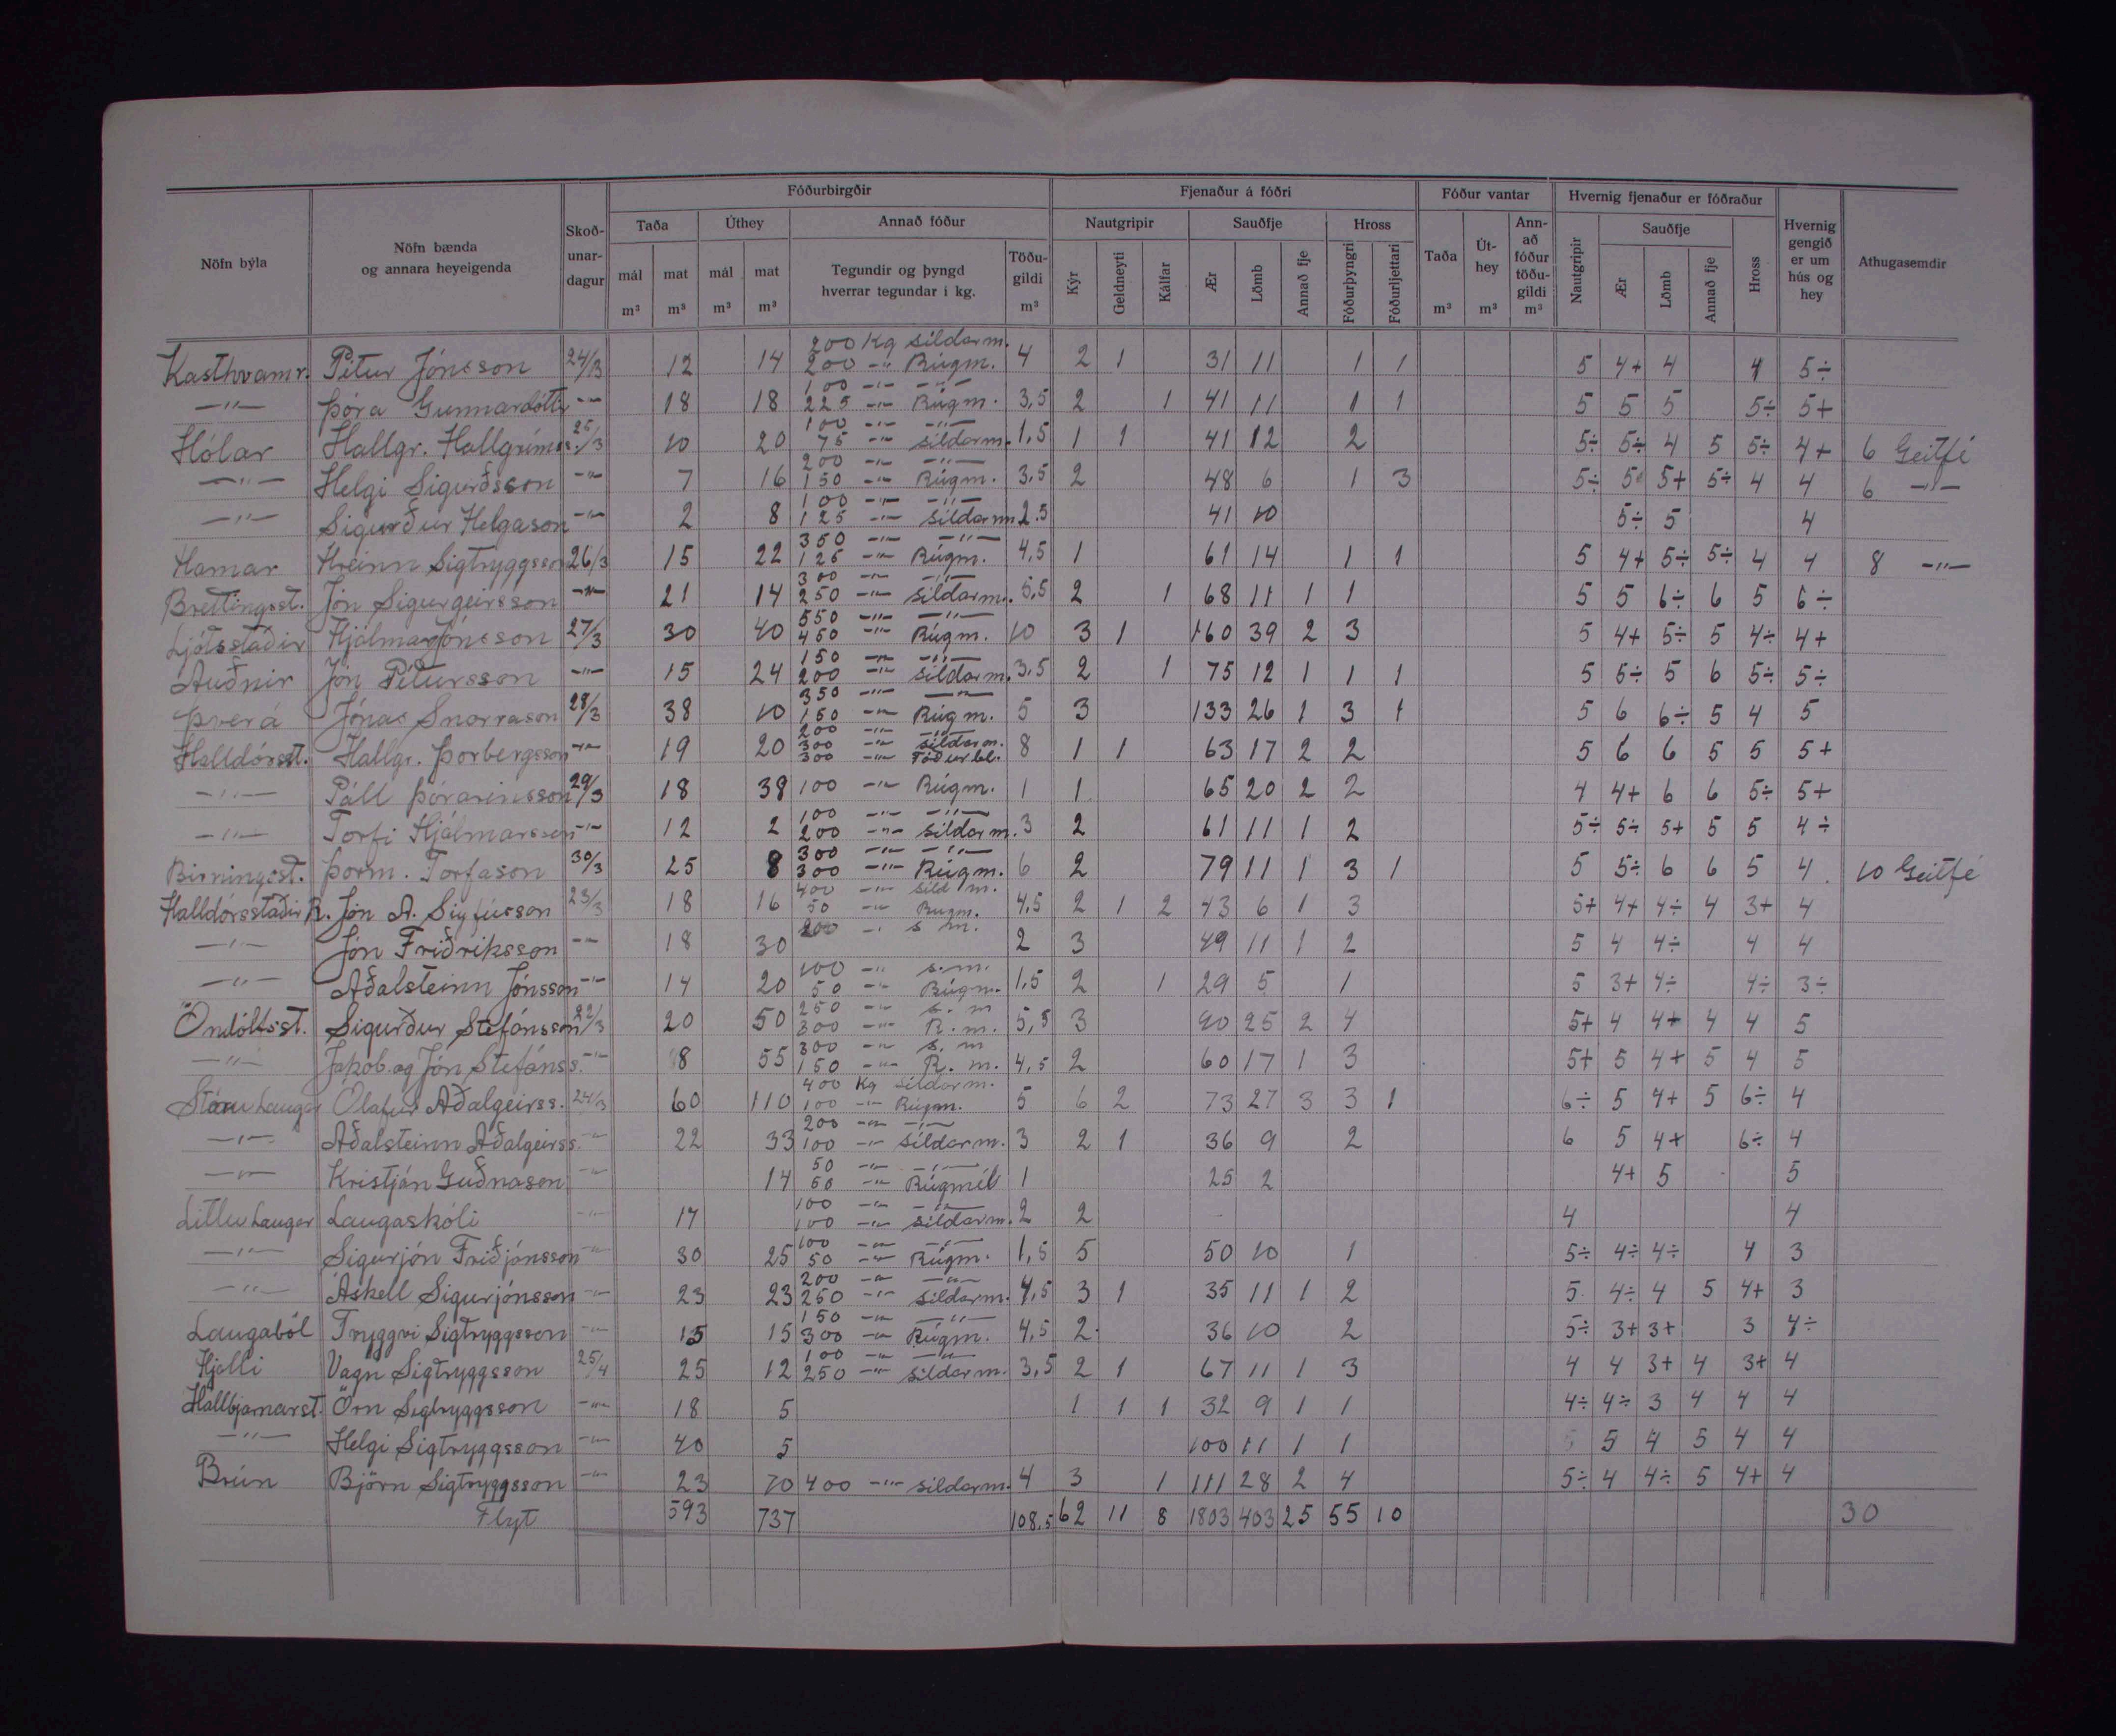 Fóðurbirgðir Fjenaður á fóðri Fóður vantar Hvernig fjenaður er fóðraður
Nöfn býla Nöfn bænda og annara heyeigenda Skoð-unar-dagur Taða Úthey Annað fóður Nautgripir Sauðfje Hross Taða Út-hey Ann-að fóður töðu-gildi Nautgripir Sauðfje Hross Hvernig gengið er um hús og hey Athugasemdir
mál mat mál mat Tegundir og þyngd hverrar tegundar í kg. Töðu-gildi Kýr Geldneyti Kálfar Ær Lömb Annað fje Fóðurþyngri Fóðurljettari Ær Lömb Annað fje
m³ m³ m³ m³ m³ m³ m³ m³
200 Kg síldarm.
Kasthvamr. Pétur Jónsson 24/3 12 14 200 -"- Rúgm. 4 2 1 31 11 1 1 5 4+ 4 4 5÷
100 -"- -"-
-"- Þóra Gunnarsdóttir -"- 18 18 225 -"- Rúgm. 3,5 2 1 41 11 1 1 5 5 5 5÷ 5+
100 -"- -"-
Hólar Hallgr. Hallgríms. 25/3 10 20 75 -"- síldarm. 1,5 1 1 41 12 2 5÷ 5÷ 4 5 5÷ 4+ 6 Geitfé
200 -"- -"-
-"- Helgi Sigurðsson -"- 7 16 150 -"- Rúgm. 3,5 2 48 6 1 3 5÷ 5 5+ 5÷ 4 4 6 -"-
100 -"- -"-
-"- Sigurður Helgason -"- 2 8 125 -"- síldarm 2.5 41 10 5÷ 5 4
350 -"- -"-
Hamar Hreinn Sigtryggsson 26/3 15 22 125 -"- Rúgm. 4,5 1 61 14 1 1 5 4+ 5÷ 5÷ 4 4 8 -"-
300 -"- -"-
Brettingsst. Jón Sigurgeirsson -"- 21 14 250 -"- síldarm. 5,5 2 1 68 11 1 1 5 5 6÷ 6 5 6÷
550 -"- -"-
Ljótsstaðir Hjálmar Jónsson 27/3 30 40 450 -"- Rúgm. 10 3 1 160 39 2 3 5 4+ 5÷ 5 4÷ 4+
150 -"- -"-
Auðnir Jón Pétursson -"- 15 24 200 -"- síldarm. 3,5 2 1 75 12 1 1 1 5 5÷ 5 6 5÷ 5÷
350 -"- -"-
Þverá Jónas Snorrason 28/3 38 10 150 -"- Rúgm. 5 3 133 26 1 3 1 5 6 6÷ 5 4 5
200 -"- -"-
300 -"- síldarm.
Halldórsst. Hallgr. Þorbergsson -"- 19 20 300 -"- Fóðurbl. 8 1 1 63 17 2 2 5 6 6 5 5 5+
-"- Páll Þórarinsson 29/3 18 38 100 -"- Rúgm. 1 1 65 20 2 2 4 4+ 6 6 5÷ 5+
100 -"- -"-
-"- Torfi Hjálmarsson -"- 12 2 200 -"- síldarm. 3 2 61 11 1 2 5÷ 5÷ 5+ 5 5 4÷
300 -"- -"-
Birningsst. Þorm. Torfason 30/3 25 8 300 -"- Rúgm. 6 2 79 11 1 3 1 5 5÷ 6 6 5 4 10 Geitfé
400 -"- síld m.
Halldórsstaðir R. Jón A. Sigfússon 23/3 18 16 50 -"- Rúgm. 4,5 2 1 2 43 6 1 3 5+ 4+ 4÷ 4 3+ 4
200 -"- s m.
-"- Jón Friðriksson -"- 18 30 2 3 49 11 1 2 5 4 4÷ 4 4
100 -"- s.m.
-"- Aðalsteinn Jónsson -"- 14 20 50 -"- Rúgm. 1,5 2 1 29 5 1 5 3+ 4÷ 4÷ 3÷
250 -"- s. m
Öndólfsst. Sigurður Stefánsson 22/3 20 50 300 -"- R. m. 5,5 3 90 25 2 4 5+ 4 4+ 4 4 5
300 -"- s. m
-"- Jakob og Jón Stefánss. -"- 8 55 150 -"- R. m. 4,5 2 60 17 1 3 5+ 5 4+ 5 4 5
400 Kg síldarm.
Stóru Laugar Ólafur Aðalgeirss. 24/3 60 110 100 -"- Rúgm. 5 6 2 73 27 3 3 1 6÷ 5 4+ 5 6÷ 4
200 -"- -"-
-"- Aðalsteinn Aðalgeirss. -"- 22 33 100 -"- síldarm. 3 2 1 36 9 2 6 5 4+ 6÷ 4
50 -"- -"-
-"- Kristján Guðnason -"- 14 50 -"- Rúgmél 1 25 2 4+ 5 5
100 -"- -"-
Litlu Laugar Laugaskóli -"- 17 100 -"- síldarm. 2 2 4 4
100 -"- -"-
-"- Sigurjón Friðjónsson -"- 30 25 50 -"- Rúgm. 1,5 5 50 10 1 5÷ 4÷ 4÷ 4 3
200 -"- -"-
-"- Áskell Sigurjónsson -"- 23 23 250 -"- síldarm. 4,5 3 1 35 11 1 2 5 4÷ 4 5 4+ 3
150 -"- -"-
Laugaból Tryggvi Sigtryggsson -"- 15 15 300 -"- Rúgm. 4,5 2 36 10 2 5÷ 3+ 3+ 3 4÷
100 -"- -"-
Hjalli Vagn Sigtryggsson 25/4 25 12 250 -"- síldarm. 3,5 2 1 67 11 1 3 4 4 3+ 4 3+ 4
Hallbjarnarst. Örn Sigtryggsson -"- 18 5 1 1 1 32 9 1 1 4÷ 4÷ 3 4 4 4
-"- Helgi Sigtryggsson -"- 40 5 100 11 1 1 5 5 4 5 4 4
Brún Björn Sigtryggsson -"- 23 70 400 -"- síldarm. 4 3 1 111 28 2 4 5÷ 4 4÷ 5 4+ 4
Flyt 593 737 108,5 62 11 8 1803 403 25 55 10 30